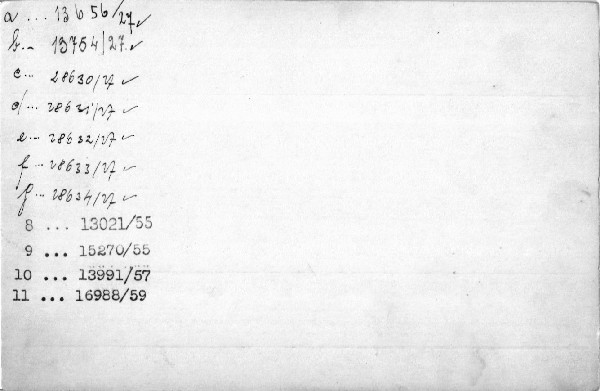 a ... 13656/27 ✓
b... 13754/27 ✓
c... 28630/27 ✓
d... 28631/27 ✓
e... 28632/27 ✓
f... 28633/27 ✓
g... 28634/27 ✓
8 ... 13021/55
9 ... 15270/55
10 ... 13991/57
11 ... 16988/59